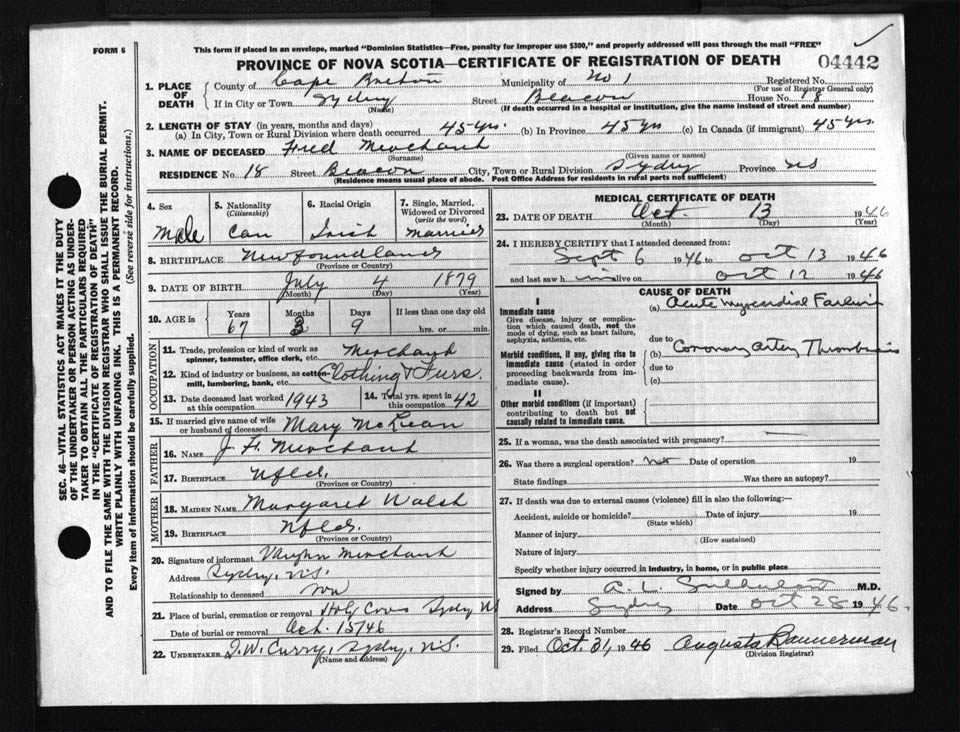 FORM 6
This form if placed in an envelope, marked "Dominion Statistics—Free, penalty for improper use $300," and properly addressed will pass through the mail "FREE"
PROVINCE OF NOVA SCOTIA—CERTIFICATE OF REGISTRATION OF DEATH
04442
1. PLACE OF DEATH
County of Cape Breton Municipality of No 1 Registered No.
(For use of Registrar General only)
If in City or Town Sydney Street Beacon House No. 18
(Name) (If death occurred in a hospital or institution, give the name instead of street and number)
2. LENGTH OF STAY (in years, months and days)
(a) In City, Town or Rural Division where death occurred 45 yrs. (b) In Province 45 yrs (c) In Canada (if immigrant) 45 yrs.
3. NAME OF DECEASED Fred Merchant
(Surname) (Given name or names)
RESIDENCE No. 18 Street Beacon City, Town or Rural Division Sydney Province NS
(Residence means usual place of abode. Post Office Address for residents in rural parts not sufficient)
4. Sex Male
5. Nationality (Citizenship) Can
6. Racial Origin Irish
7. Single, Married, Widowed or Divorced (write the word) Married
8. BIRTHPLACE Newfoundland
(Province or Country)
9. DATE OF BIRTH July 4 1879
(Month) (Day) (Year)
10. AGE in Years Months Days If less than one day old
67 3 9 hrs. or min.
OCCUPATION
11. Trade, profession or kind of work as spinner, teamster, office clerk, etc. Merchant
12. Kind of industry or business, as cotton-mill, lumbering, bank, etc. Clothing & Furs.
13. Date deceased last worked at this occupation 1943
14. Total yrs. spent in this occupation 42
15. If married give name of wife or husband of deceased Mary McLean
FATHER
16. NAME J. F. Merchant
17. BIRTHPLACE Nfld.
(Province or Country)
MOTHER
18. MAIDEN NAME Margaret Walsh
19. BIRTHPLACE Nfld.
(Province or Country)
20. Signature of informant Vaughn Merchant
Address Sydney, N.S.
Relationship to deceased
21. Place of burial, cremation or removal Holy Cross Sydney NS
Date of burial or removal Oct. 15/46
22. UNDERTAKER T.W. Curry, Sydney, N.S.
(Name and address)
MEDICAL CERTIFICATE OF DEATH
23. DATE OF DEATH Oct. 13 1946
(Month) (Day) (Year)
24. I HEREBY CERTIFY that I attended deceased from:
Sept 6 1946 to Oct 13 1946
and last saw h im alive on Oct 12 1946
CAUSE OF DEATH
I
Immediate cause
Give disease, injury or complication which caused death, not the mode of dying, such as heart failure, asphyxia, asthenia, etc.
(a) Acute Myocardial Failure
due to
Morbid conditions, if any, giving rise to immediate cause (stated in order proceeding backwards from immediate cause).
(b) Coronary Artery Thrombosis
due to
(c)
II
Other morbid conditions (if important) contributing to death but not causally related to immediate cause.
25. If a woman, was the death associated with pregnancy? —
26. Was there a surgical operation? no Date of operation 19
State findings Was there an autopsy?
27. If death was due to external causes (violence) fill in also the following:—
Accident, suicide or homicide? Date of injury 19
(State which)
Manner of injury
(How sustained)
Nature of injury
Specify whether injury occurred in industry, in home, or in public place
Signed by A. L. M.D.
Address Sydney Date Oct 28 1946.
28. Registrar's Record Number
29. Filed Oct. 31, 1946 Augusta Bannerman
(Division Registrar)
SEC. 46—VITAL STATISTICS ACT MAKES IT THE DUTY
OF THE UNDERTAKER OR PERSON ACTING AS UNDER-
TAKER TO OBTAIN ALL THE PARTICULARS REQUIRED
IN THE "CERTIFICATE OF REGISTRATION OF DEATH"
AND TO FILE THE SAME WITH THE DIVISION REGISTRAR WHO SHALL ISSUE THE BURIAL PERMIT.
WRITE PLAINLY WITH UNFADING INK. THIS IS A PERMANENT RECORD.
Every item of information should be carefully supplied. (See reverse side for instructions.)